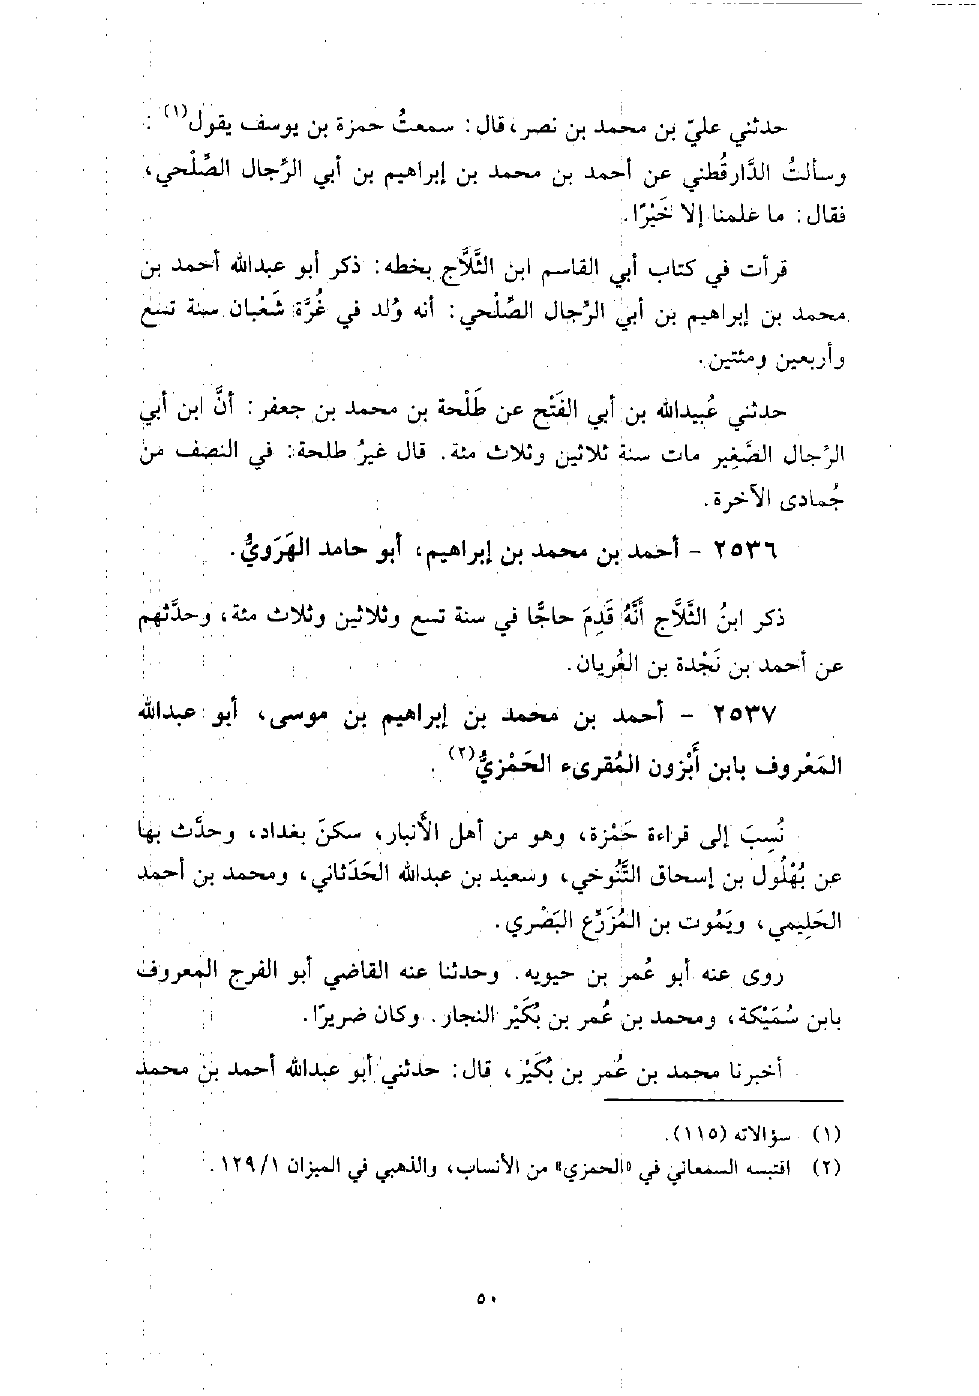 حدثني عليّ بن محمد بن نصر، قال: سمعتُ حمزة بن يوسف يقول(١):
وسألتُ الدَّارقُطني عن أحمد بن محمد بن إبراهيم بن أبي الرِّجال الصِّلْحي،
فقال: ما علمنا إلا خَيْرًا.
قرأت في كتاب أبي القاسم ابن الثَّلَّاج بخطه: ذكر أبو عبدالله أحمد بن
محمد بن إبراهيم بن أبي الرِّجال الصِّلْحي: أنه وُلد في غُرَّة شَعْبان سنة تسع
وأربعين ومئتين.
حدثني عُبيدالله بن أبي الفَتْح عن طَلْحة بن محمد بن جعفر: أنَّ ابن أبي
الرِّجال الصَّغِير مات سنة ثلاثين وثلاث مئة. قال غيرُ طلحة: في النصف من
جُمادى الآخرة.
٢٥٣٦ - أحمد بن محمد بن إبراهيم، أبو حامد الهَرَويُّ.
ذكر ابنُ الثَّلَّاج أنَّهُ قَدِمَ حاجًّا في سنة تسع وثلاثين وثلاث مئة، وحدَّثهم
عن أحمد بن نَجْدة بن العُريان.
٢٥٣٧ - أحمد بن محمد بن إبراهيم بن موسى، أبو عبدالله
المَعْروف بابن أَبْزون المُقرىء الحَمْزيُّ(٢).
نُسِبَ إلى قراءة حَمْزة، وهو من أهل الأنبار، سكنَ بغداد، وحدَّث بها
عن بُهْلُول بن إسحاق التَّنُوخي، وسعيد بن عبدالله الحَدَثاني، ومحمد بن أحمد
الحَلِيمي، ويَمُوت بن المُزَرَّع البَصْري.
روى عنه أبو عُمر بن حيويه. وحدثنا عنه القاضي أبو الفرج المعروف
بابن سُمَيْكة، ومحمد بن عُمر بن بُكَيْر النجار. وكان ضريرًا.
أخبرنا محمد بن عُمر بن بُكَيْر، قال: حدثني أبو عبدالله أحمد بن محمد
(١) سؤالاته (١١٥).
(٢) اقتبسه السمعاني في «الحمزي» من الأنساب، والذهبي في الميزان ١/ ١٢٩.
٥٠